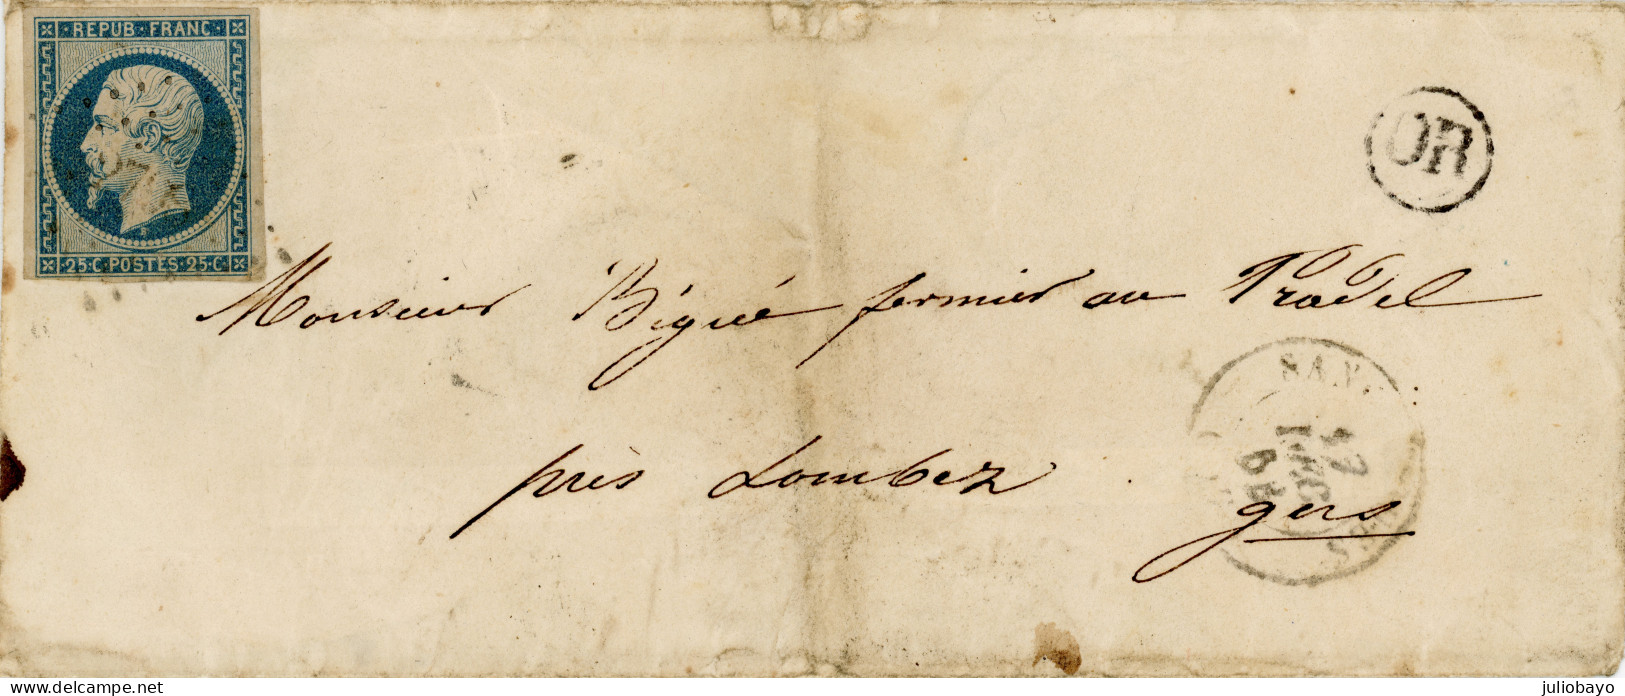 REPUB. FRANC.
25.C. POSTES. 25.C.
OR
Monsieur Bégué fermier au Pradel
près Lombez
gers
17
54
delcampe.net
juliobayo